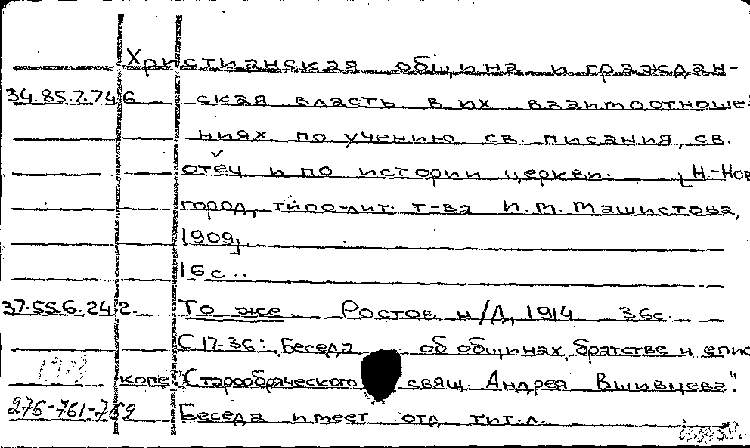 Христианская община и граждан-
34.85.7.746 ская власть в их взаимоотноше-
ниях по учению св. писания, св.
отеч и по истории церкви. [Н.-Нов
город, типо-лит. т-ва И.М. Машистова,
1909]
16 с..
37.55.6.242. То же Ростов н/Д, 1914 36с.
С 17-36: Беседа об общинах, братстве и епис
копе "Старообрядческого свящ. Андрея Вшивцева".
276-761-789 Беседа имеет отд. тит. л.